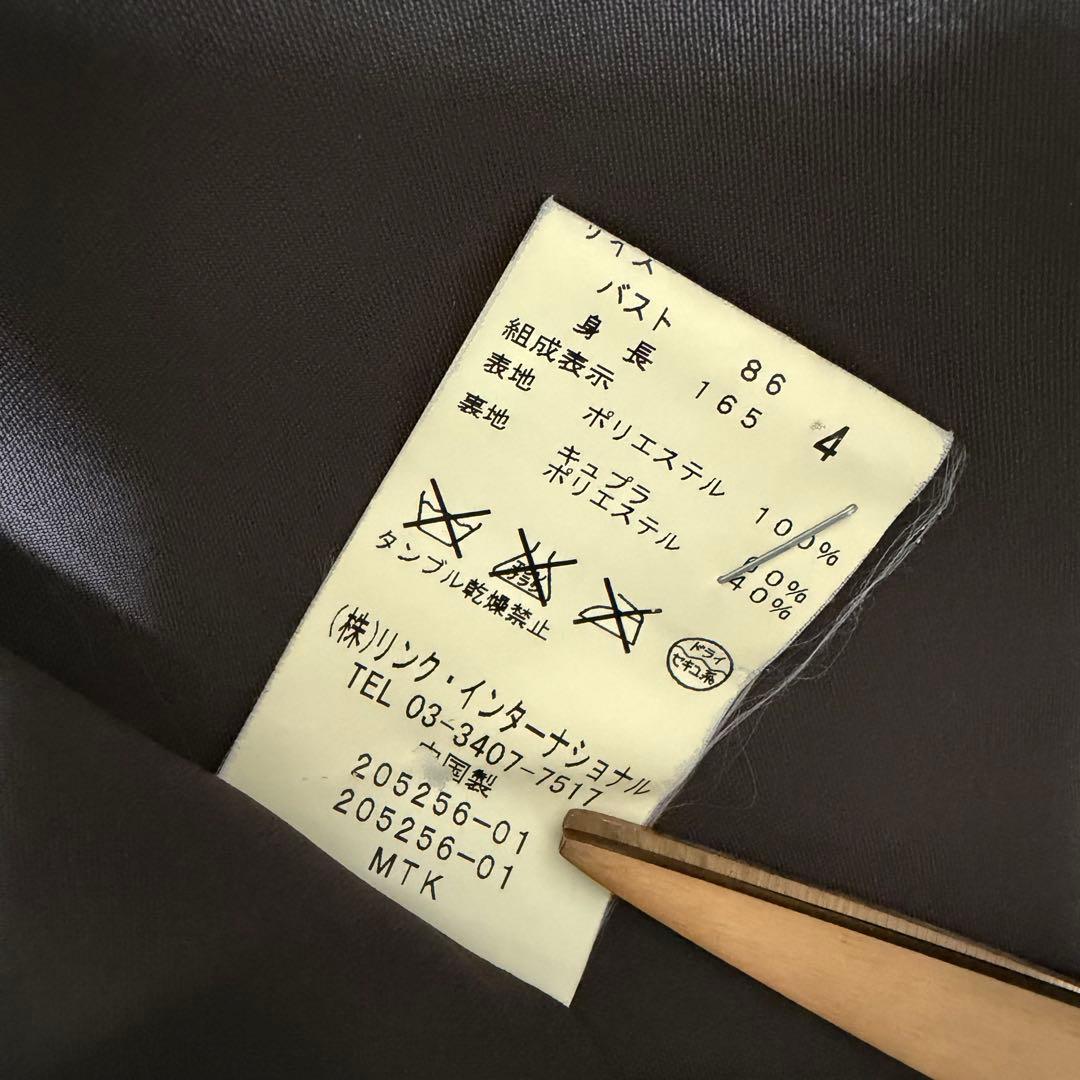 サイズ 4
バスト 86
身長 165
組成表示
表地 ポリエステル 100%
裏地 キュプラ 60%
ポリエステル 40%
ドライ
セキユ系
タンブル乾燥禁止
(株)リンク・インターナショナル
TEL 03-3407-7517
中国製
205256-01
205256-01
MTK